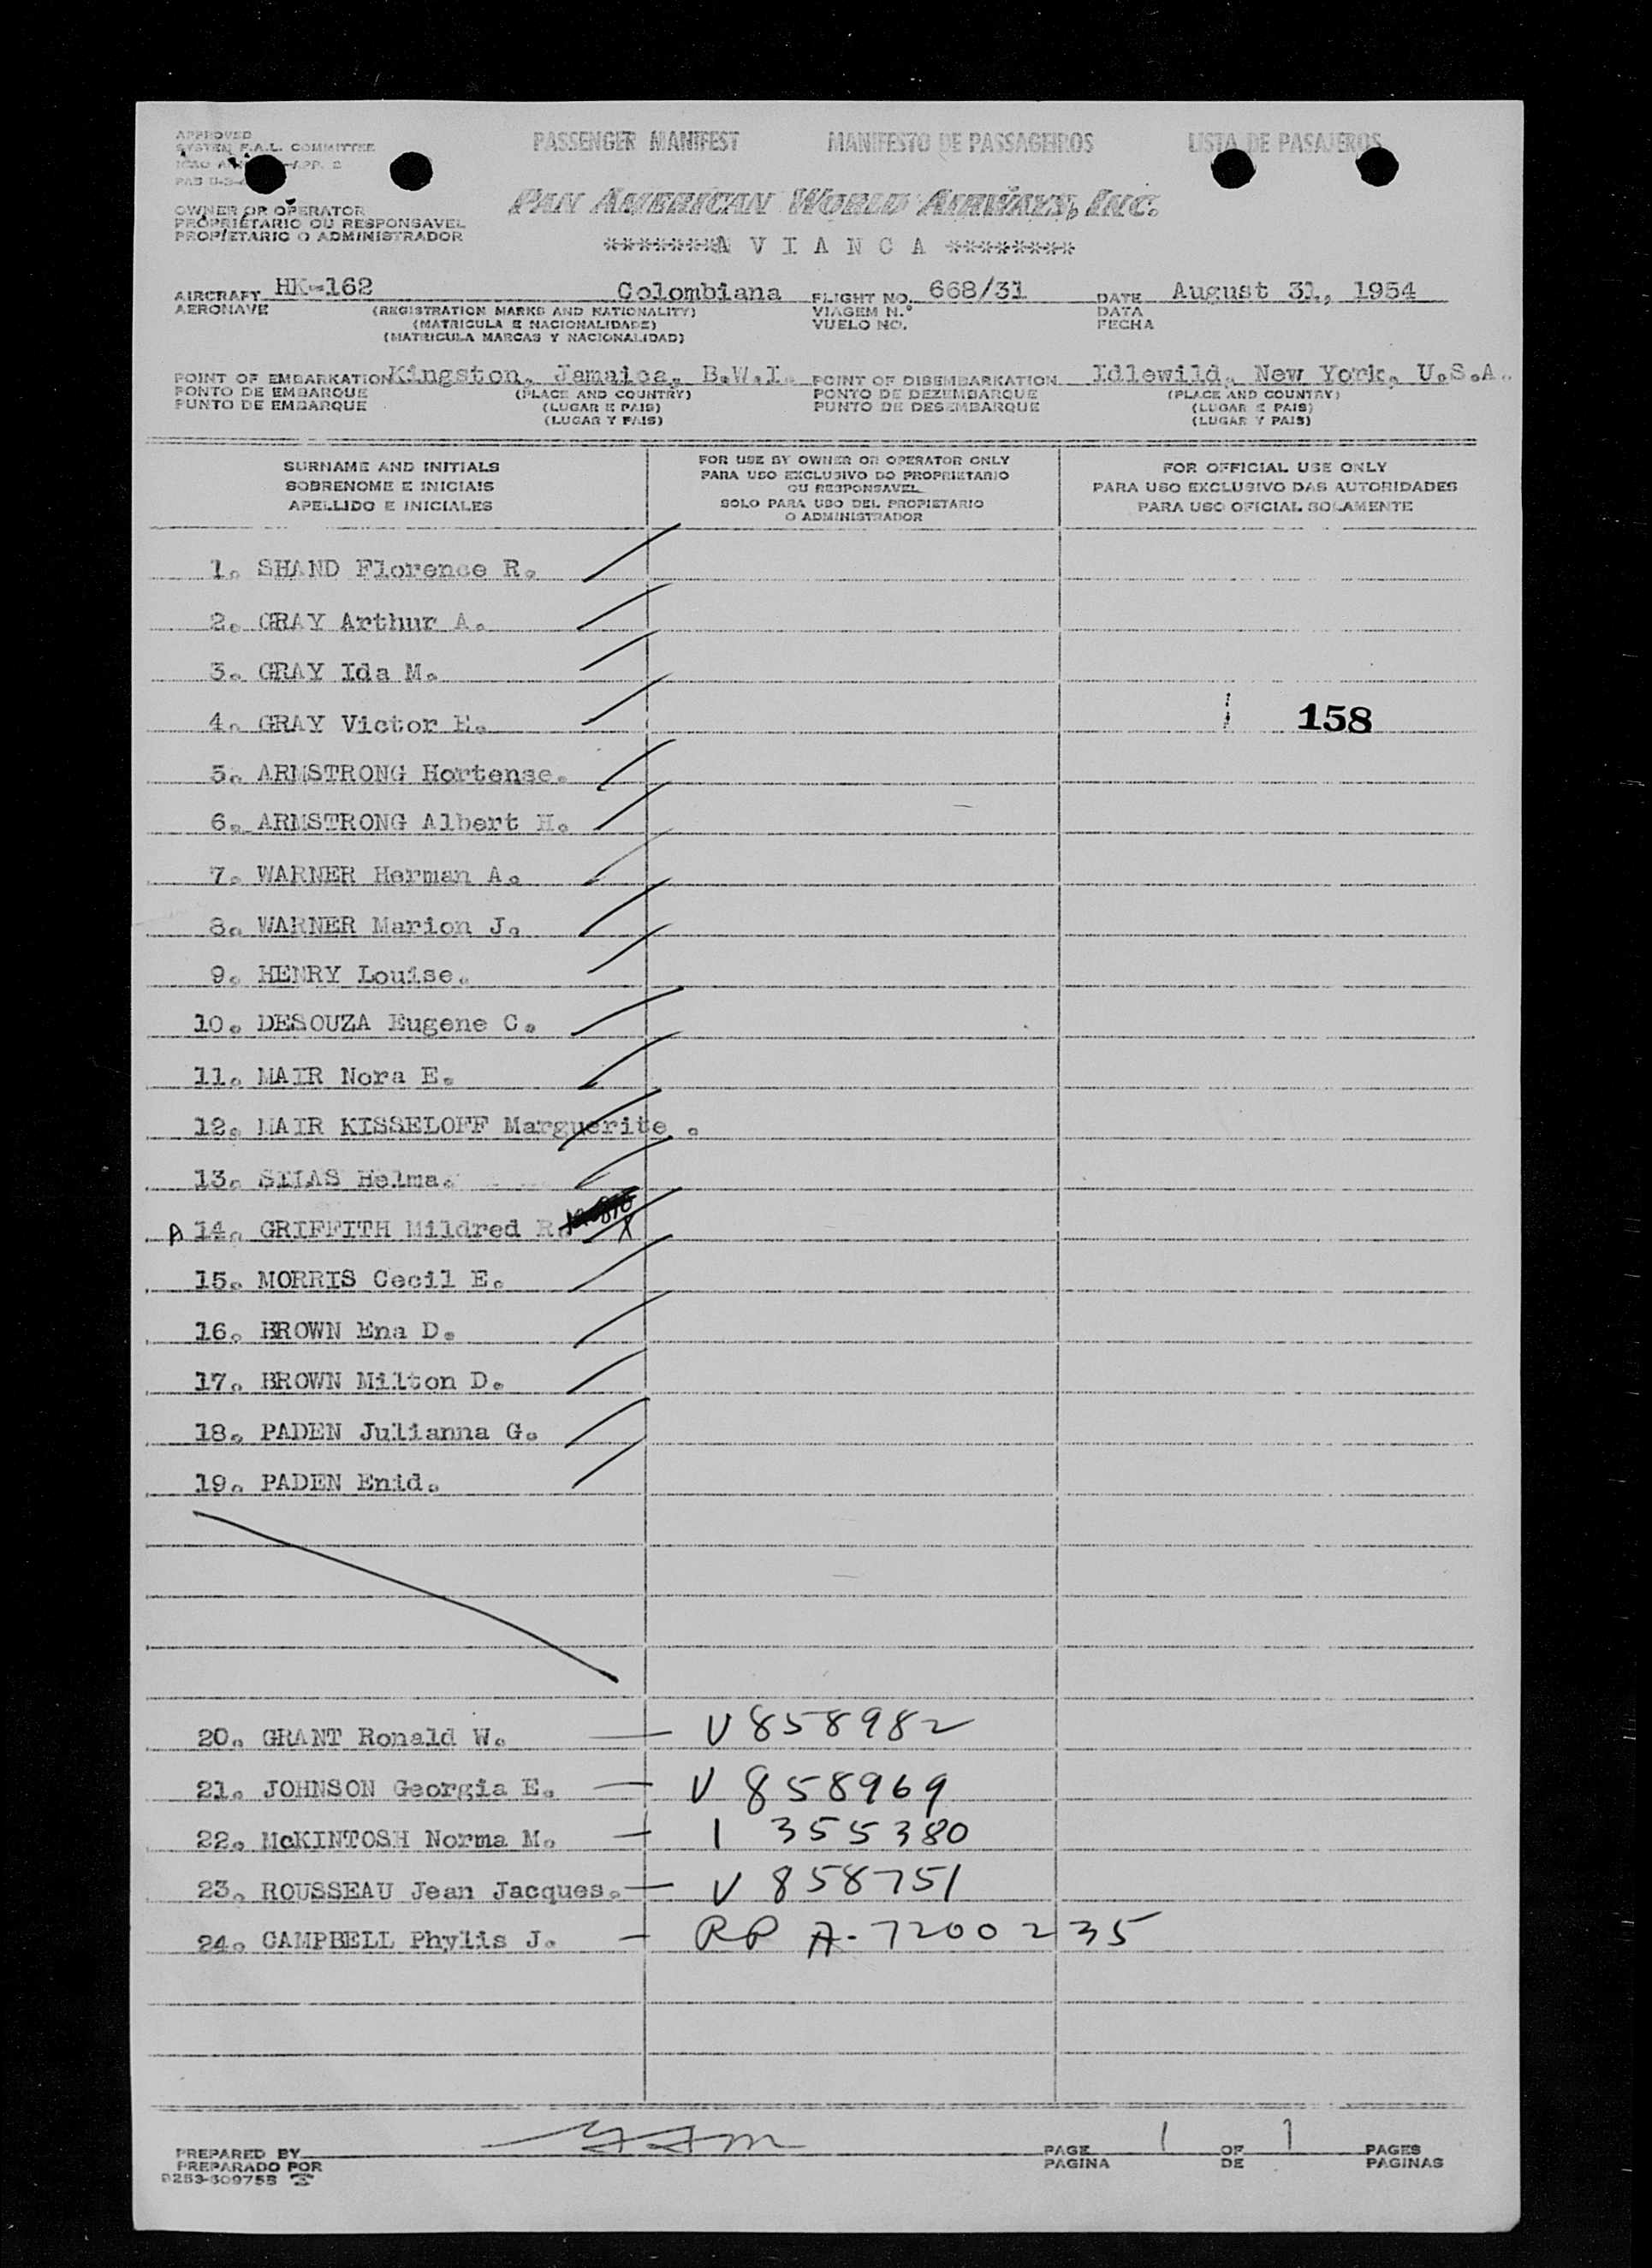 APPROVED
SYSTEM F.A.L. COMMITTEE
APP. 2
PASSENGER MANIFEST MANIFESTO DE PASSAGEIROS LISTA DE PASAJEROS
OWNER OR OPERATOR
PROPRIÉTARIO OU RESPONSAVEL
PROPIETARIO O ADMINISTRADOR
PAN AMERICAN WORLD AIRWAYS, INC.
*******A V I A N C A ********
AIRCRAFT HK-162 Colombiana FLIGHT NO. 668/31 DATE August 31, 1954
AERONAVE (REGISTRATION MARKS AND NATIONALITY) VIAGEM N.º DATA
(MATRICULA E NACIONALIDADE) VUELO NO. FECHA
(MATRICULA MARCAS Y NACIONALIDAD)
POINT OF EMBARKATION Kingston, Jamaica, B.W.I. POINT OF DISEMBARKATION Idlewild, New York, U.S.A.
PONTO DE EMBARQUE (PLACE AND COUNTRY) PONTO DE DEZEMBARQUE (PLACE AND COUNTRY)
PUNTO DE EMBARQUE (LUGAR E PAIS) PUNTO DE DESEMBARQUE (LUGAR E PAIS)
(LUGAR Y PAIS) (LUGAR Y PAIS)
SURNAME AND INITIALS
SOBRENOME E INICIAIS
APELLIDO E INICIALES
FOR USE BY OWNER OR OPERATOR ONLY
PARA USO EXCLUSIVO DO PROPRIETARIO
OU RESPONSAVEL
SOLO PARA USO DEL PROPIETARIO
O ADMINISTRADOR
FOR OFFICIAL USE ONLY
PARA USO EXCLUSIVO DAS AUTORIDADES
PARA USO OFICIAL SOLAMENTE
1. SHAND Florence R.
2. GRAY Arthur A.
3. GRAY Ida M.
4. GRAY Victor E. 158
5. ARMSTRONG Hortense.
6. ARMSTRONG Albert H.
7. WARNER Herman A.
8. WARNER Marion J.
9. HENRY Louise.
10. DESOUZA Eugene C.
11. MAIR Nora E.
12. MAIR KISSELOFF Marguerite .
13. STIAS Helma.
A 14. GRIFFITH Mildred R. X
15. MORRIS Cecil E.
16. BROWN Ena D.
17. BROWN Milton D.
18. PADEN Julianna G.
19. PADEN Enid.
20. GRANT Ronald W. — V 858982
21. JOHNSON Georgia E. — V 858969
22. McKINTOSH Norma M. — I 355380
23. ROUSSEAU Jean Jacques. — V 858751
24. CAMPBELL Phylis J. — RP A-7200235
PREPARED BY PAGE 1 OF 1 PAGES
PREPARADO POR PAGINA DE PAGINAS